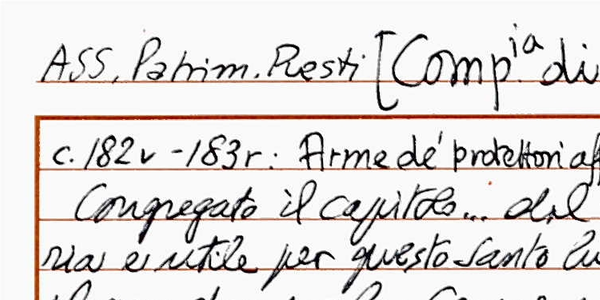 ASS, Patrim. Resti [Comp.ia di
c. 182v - 183r: Arme de' protettori aff
Congregato il capitolo... del
ria e utile per questo santo lu